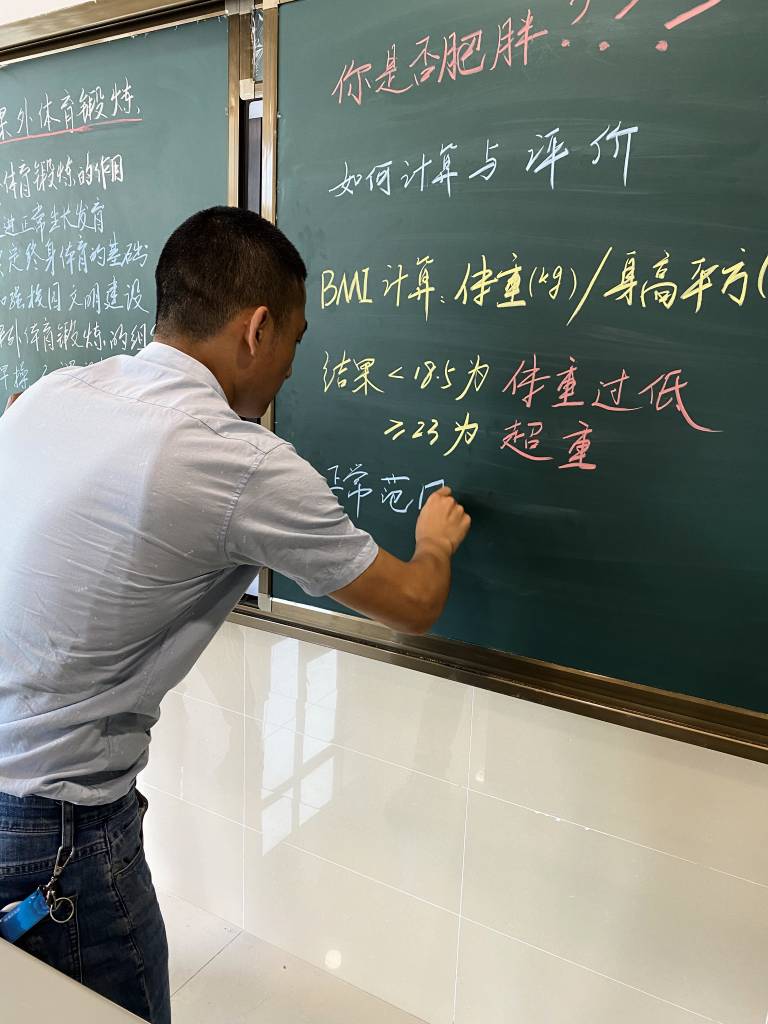 课外体育锻炼
体育锻炼的作用
进正常生长发育
定终身体育的基础
强校园文明建设
外体育锻炼的组
你是否肥胖???
如何计算与评价
BMI计算:体重(kg)/身高平方(
结果<18.5为体重过低
≥23为超重
正常范